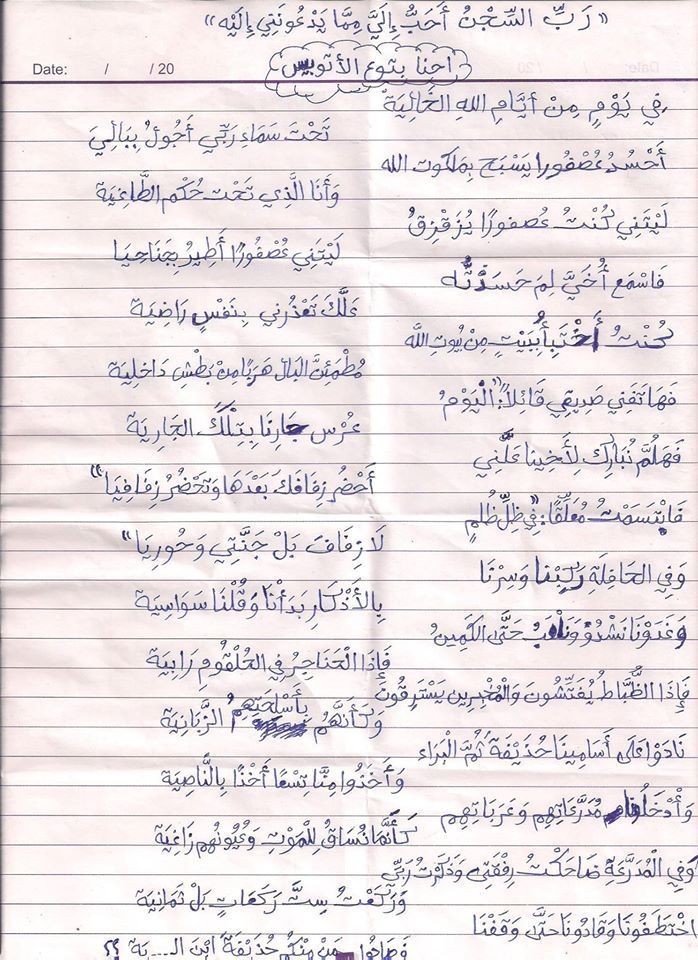 « رَبِّ السِّجْنُ أَحَبُّ إِلَيَّ مِمَّا يَدْعُونَنِي إِلَيْه »
Date: / / 20
احنا بتوع الأتوبيس
في يَوْمٍ مِنْ أَيَّامِ اللهِ الخَالِيَة
تَحْتَ سَمَاءِ رَبِّي أَجُولُ بِبَالِيَ
أَحْسُدُ عُصْفُورا يَسْبَح بِمَلَكُوتِ الله
وَأَنَا الَّذِي تَحْتَ حُكْمِ الطَّاغِيَة
لَيْتَنِي كُنْتُ عُصفورًا يُزَقْزِقُ
لَيْتَنِي عُصْفُورًا أَطِيرُ بِجَنَاحِيَا
فَاسْمَع أُخَيَّ لِمَ حَسَدْتُه
عَلَّكَ تَعْذُرُني بِنَفْسٍ رَاضِيَة
كُنْتُ أَخْتَبِأُ بِبَيْتٍ مِنْ بُيُوتِ اللَّه
مُطْمَئِنَّ البَالِ هَرَبًا مِنْ بَطْشِ دَاخِلِيَة
فَهَاتَفَنِي صَدِيقِي قَائِلاً: "الْيَوْمُ
عُرْسُ جَارِنَا بِتِلْكَ الجَارِيَة
فَهَلُمَّ نُبَارِكُ لِأَخِينَا عَلَّنِي
أَحْضُرُ زِفَافَكَ بَعْدَهَا وَتَحْضُرُ زِفَافِيَا"
فَابْتَسَمْتُ مُعَلِّقًا: "فِي ظِلِّ ظُلمٍ
لَا زِفَافَ بَلْ جَنَّتِي وَحُورِيَا"
وَفِي الحَافِلَةِ رَكِبْنَا وَسِرْنَا
بِالأَذْكَارِ بَدَأْنَا وَقُلْنَا سَوَاسِيَة
وَغَدَوْنَا نَشْدُو وَنَلْعَبُ حَتَّى الكَمِينِ
فَإِذَا الحَنَاجِرُ فِي الحُلْقُومِ رَابِيَة
فَإِذَا الظُّبَّاطُ يُفَتِّشُونَ وَالْمُخْبِرِينَ يَسْتَرِقُونَ
وَكَأَنَّهُم بِأَسْلِحَتِهِمُ الزَّبَانِيَة
نَادَوْا عَلَى أَسَامِينَا حُذَيْفَةَ ثُمَّ الْبَرَاء
وَأَخَذُوا مِنَّا تِسْعًا أَخْذًا بِالنَّاصِيَة
وَأَدْخَلُونَا مُدَرَّعَاتِهِم وَعَرَبَاتِهِم
كَأَنَّمَا نُسَاقُ لِلْمَوْتِ وَعُيُونُهُم زَاغِيَة
وَفِي الْمُدَرَّعَةِ ضَاحَكْتُ رِفْقَتِي وَذَكَرْتُ رَبِّي
وَرَكَعْتُ سِتَّ رَكَعَاتٍ بَلْ ثَمَانِيَة
اخْتَطَفُونَا وَقَادُونَا حَتَّى وَقَفْنَا
وَصَاحُوا مَنْ مِنْكُم حُذَيْفَةُ ابْنَ الـ.....ـة ؟؟